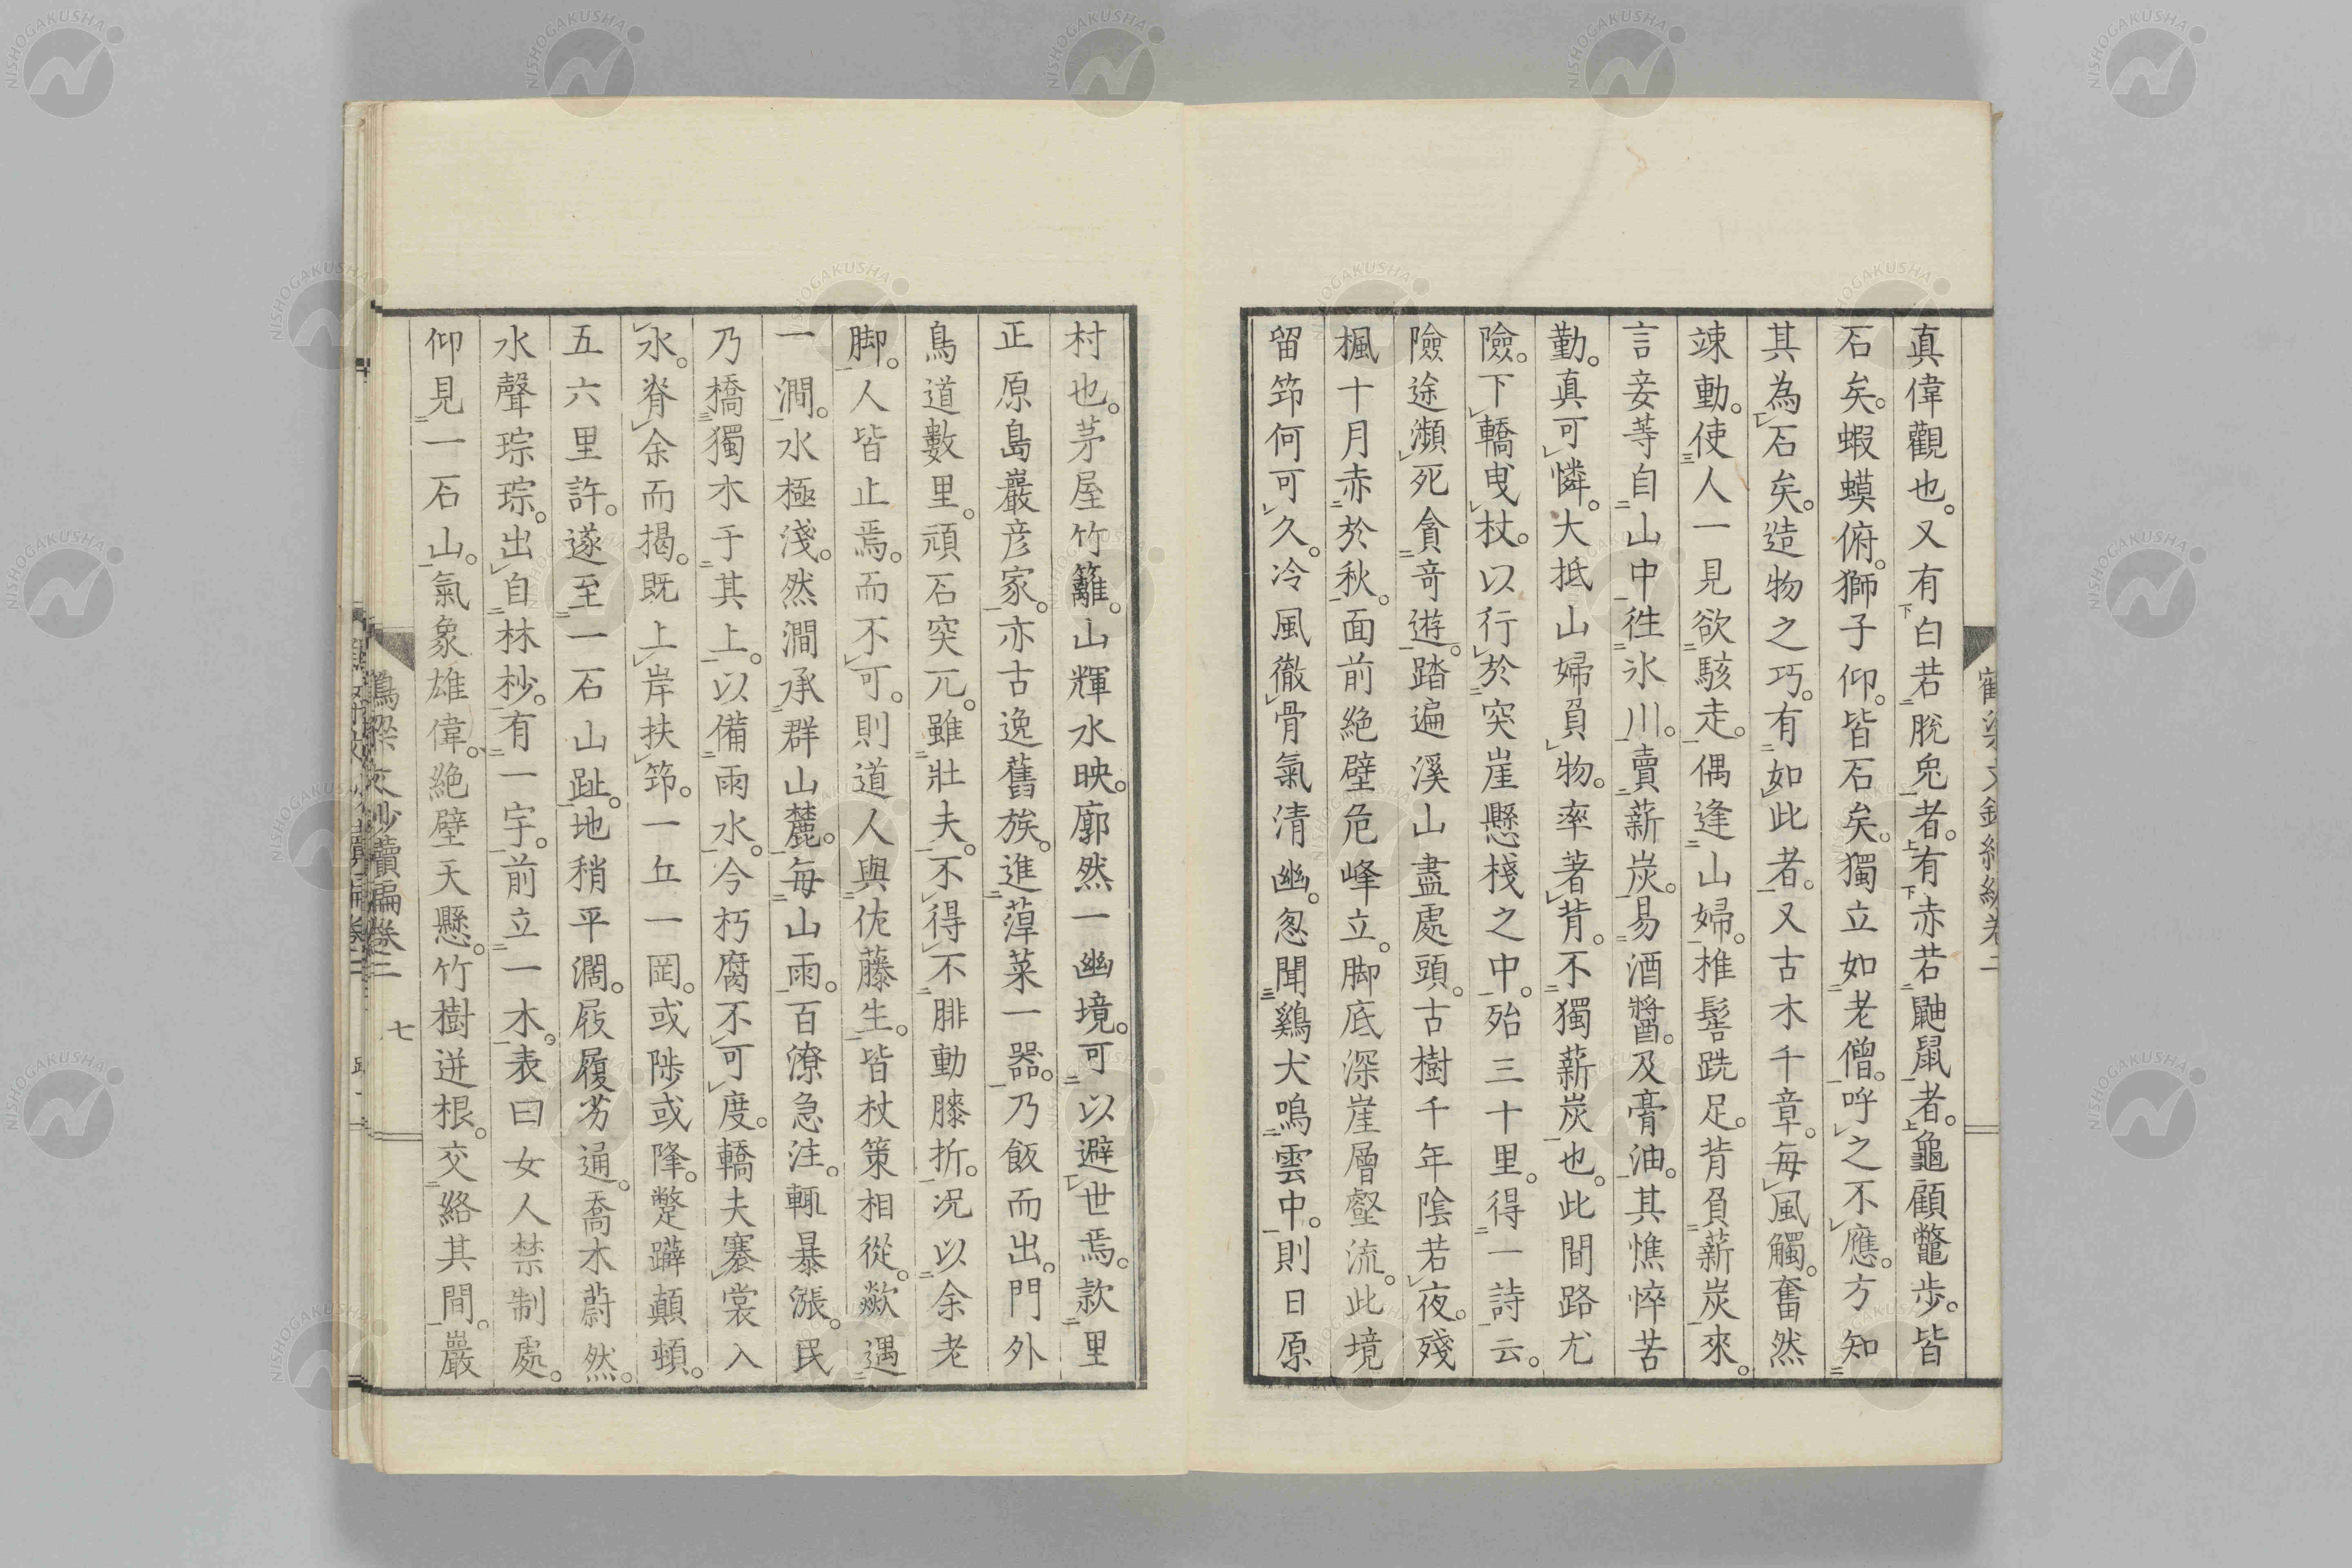 真偉觀也。又有白若脫兎者。有赤若鼬鼠者。龜顧鼈步。皆
石矣。蝦蟆俯。獅子仰。皆石矣。獨立如老僧。呼之不應。方知
其為石矣。造物之巧。有如此者。又古木千章。每風觸。奮然
竦動。使人一見欲駭走。偶逢山婦。椎髻跣足。背負薪炭來。
言妾等自山中徃氷川。賣薪炭。易酒醬。及膏油。其憔悴苦
勤。真可憐。大抵山婦負物。率著背。不獨薪炭也。此間路尤
險。下轎曳杖。以行於突崖懸棧之中。殆三十里。得一詩云。
險途瀕死貪奇遊。踏遍溪山盡處頭。古樹千年陰若夜。殘
楓十月赤於秋。面前絶壁危峰立。脚底深崖層壑流。此境
留筇何可久。冷風徹骨氣清幽。忽聞鷄犬鳴雲中。則日原
村也。茅屋竹籬。山輝水映。廓然一幽境。可以避世焉。款里
正原島巖彦家。亦古逸舊族。進蕈菜一器。乃飯而出。門外
鳥道數里。頑石突兀。雖壯夫。不得不腓動膝折。况以余老
脚。人皆止焉。而不可。則道人與佐藤生。皆杖策相從。歘遇
一澗。水極淺。然澗承群山麓。每山雨。百潦急注。輒暴漲。民
乃橋獨木于其上。以備雨水。今朽腐不可度。轎夫褰裳入
水。脊余而揭。既上岸扶筇。一丘一岡。或陟或降。蹩躃顛頓。
五六里許。遂至一石山趾。地稍平濶。屐履芳通。喬木蔚然。
水聲琮琮。出自林杪。有一宇。前立一木。表曰女人禁制處。
仰見一石山。氣象雄偉。絶壁天懸。竹樹迸根。交絡其間。巖
鶴梁文鈔續編卷二 七